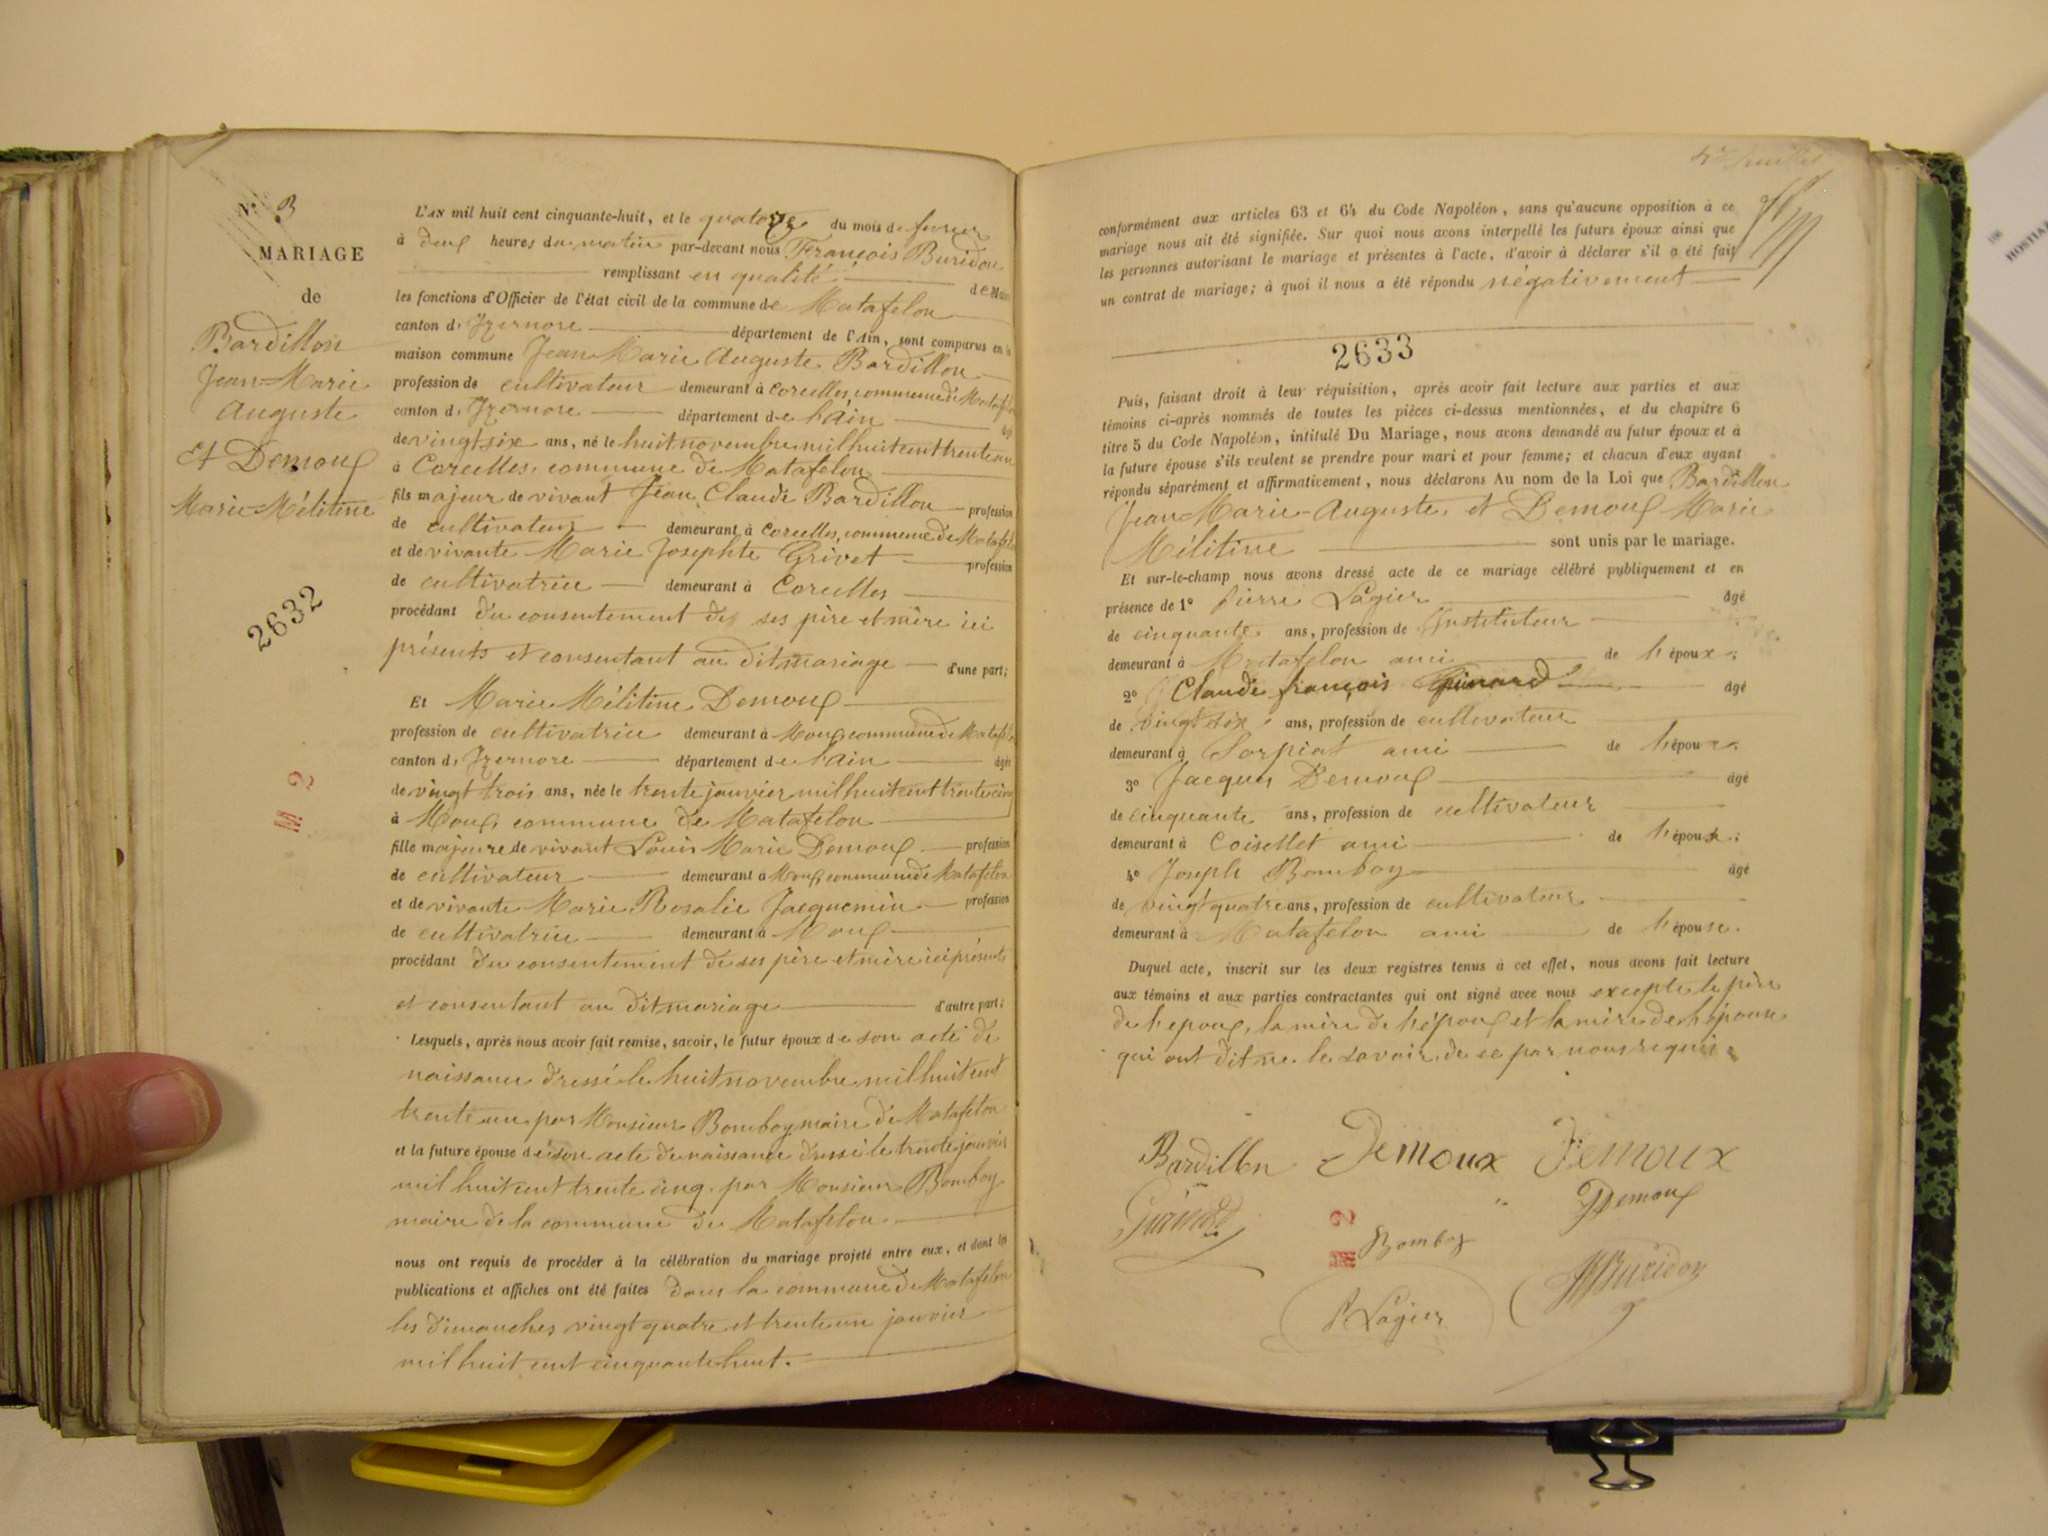 N° 3
MARIAGE
de
Bardillon
Jean-Marie
Auguste
Et Demoux
Marie-Mélitine
2632
M 2
L'AN mil huit cent cinquante-huit, et le quatorze du mois de fevrier
à deux heures du matin par-devant nous François Buridon
remplissant en qualité de Maire
les fonctions d'Officier de l'état civil de la commune de Matafelon
canton d'Izernore département de l'Ain, sont comparus en la
maison commune Jean Marie Auguste Bardillon
profession de cultivateur demeurant à Corcelles, commune de Matafelon
canton d'Izernore département de l'Ain âgé
de vingt six ans, né le huit novembre mil huit cent trente un
à Corcelles, commune de Matafelon
fils majeur de vivant Jean Claude Bardillon profession
de cultivateur demeurant à Corcelles, commune de Matafelon
et de vivante Marie Josephte Grivet profession
de cultivatrice demeurant à Corcelles
procédant du consentement de ses père et mère ici
présents et consentant au dit mariage d'une part;
Et Marie Mélitine Demoux
profession de cultivatrice demeurant à Moux commune de Matafelon
canton d'Izernore département de l'Ain âgée
de vingt trois ans, née le trente janvier mil huit cent trente cinq
à Moux, commune de Matafelon
fille majeure de vivant Louis Marie Demoux profession
de cultivateur demeurant à Moux commune de Matafelon
et de vivante Marie Rosalie Jacquemin profession
de cultivatrice demeurant à Moux
procédant du consentement de ses père et mère ici présents
et consentant au dit mariage d'autre part;
Lesquels, après nous avoir fait remise, savoir, le futur époux de son acte de
naissance dressé le huit novembre mil huit cent
trente un par Monsieur Bomboy maire de Matafelon
et la future épouse de son acte de naissance dressé le trente janvier
mil huit cent trente cinq, par Monsieur Bomboy
maire de la commune de Matafelon
nous ont requis de procéder à la célébration du mariage projeté entre eux, et dont les
publications et affiches ont été faites dans la commune de Matafelon
les dimanches vingt quatre et trente un janvier
mil huit cent cinquante huit.
conformément aux articles 63 et 64 du Code Napoléon, sans qu'aucune opposition à ce
mariage nous ait été signifiée. Sur quoi nous avons interpellé les futurs époux ainsi que
les personnes autorisant le mariage et présentes à l'acte, d'avoir à déclarer s'il a été fait
un contrat de mariage; à quoi il nous a été répondu négativement
2633
Puis, faisant droit à leur réquisition, après avoir fait lecture aux parties et aux
témoins ci-après nommés de toutes les pièces ci-dessus mentionnées, et du chapitre 6
titre 5 du Code Napoléon, intitulé Du Mariage, nous avons demandé au futur époux et à
la future épouse s'ils veulent se prendre pour mari et pour femme; et chacun d'eux ayant
répondu séparément et affirmativement, nous déclarons Au nom de la Loi que Bardillon
Jean Marie-Auguste, et Demoux Marie
Mélitine sont unis par le mariage.
Et sur-le-champ nous avons dressé acte de ce mariage célébré publiquement et en
présence de 1° Pierre Lagier âgé
de cinquante ans, profession de Instituteur
demeurant à Matafelon ami de l'époux;
2° Claude françois Guinard âgé
de vingt six ans, profession de cultivateur
demeurant à Sorpiat ami de l'époux;
3° Jacques Demoux âgé
de cinquante ans, profession de cultivateur
demeurant à Coisellet ami de l'époux;
4° Joseph Bomboy âgé
de vingt quatre ans, profession de cultivateur
demeurant à Matafelon ami de l'épouse.
Duquel acte, inscrit sur les deux registres tenus à cet effet, nous avons fait lecture
aux témoins et aux parties contractantes qui ont signé avec nous excepté le père
de l'epoux, la mère de l'époux et la mère de l'épouse
qui ont dit ne le savoir de ce par nous requis.
Bardillon Demoux Demoux
Guinard Demoux
M 2
Bomboy
P Lagier Buridon
HOSTIA